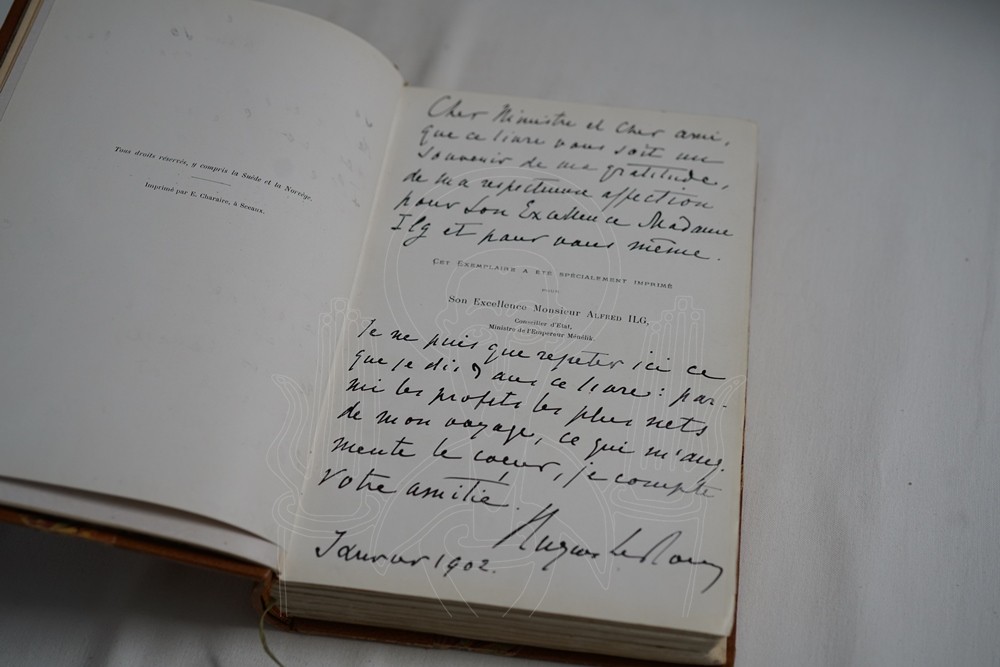 Tous droits réservés, y compris la Suède et la Norvège.
Imprimé par E. Charaire, à Sceaux.
Cher Ministre et cher ami,
que ce livre vous soit un
souvenir de ma gratitude,
de ma respectueuse affection
pour Son Excellence Madame
Ilg et pour vous même.
CET EXEMPLAIRE A ÉTÉ SPÉCIALEMENT IMPRIMÉ
POUR
Son Excellence Monsieur ALFRED ILG,
Conseiller d'État,
Ministre de l'Empereur Ménélik.
Je ne puis que repeter ici ce
que je dis dans ce livre : par-
mi les profits les plus nets
de mon voyage, ce qui m'aug.
mente le cœur, je compte
Votre amitié.
Hugues Le Roux
Janvier 1902.